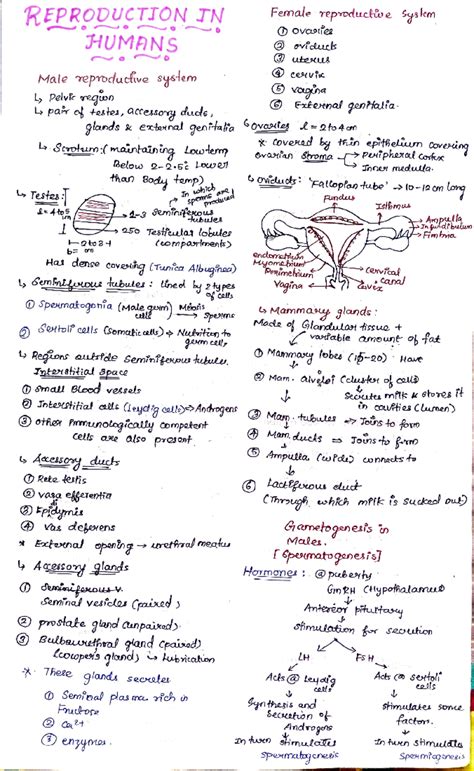 REPRODUCTION IN
HUMANS
Male reproductive system
↳ Pelvic region
↳ pair of testes, accessory ducts,
glands & external genitalia
↳ Scrotum: (maintaining low tem
Below 2-2.5c Lower
than Body temp)
↳ Testes:
l = 4 to 5
cm
b = 2 to 3
cm
In which
sperms are
produced
→ 1-3 Seminiferous
tubules
→ 250 Testicular lobules
(compartments)
Has dense covering (Tunica Albuginea)
↳ Seminiferous tubules: lined by 2 types
of cells
① Spermatogonia (Male germ) Meiosis → Sperms
cells
② Sertoli cells (Somatic cells) → Nutrition to
germ cell,
↳ Regions outside Seminiferous tubules.
Interstitial space
① Small Blood vessels
② Interstitial cells (leydig cells) → Androgens
③ other immunologically competent
cells are also present.
↳ Accessory ducts
① Rete testis
② vasa efferentia
③ Epidymis
④ Vas deferens
* External opening → urethral meatus
↳ Accessory glands
① Seminiferous v.
Seminal vesicles (paired)
② prostate gland (unpaired)
③ Bulbourethral gland (paired)
(cowper's gland) ↳ Lubrication
* These glands secretes
① Seminal plasma rich in
Fructose
② Ca²⁺
③ enzymes.
Female reproductive System
① ovaries
② oviducts
③ uterus
④ cervix
⑤ vagina
⑥ External genitalia.
↳ ovaries l = 2 to 4 cm
* covered by thin epithelium covering
ovarian Stroma → Peripheral cortex
→ Inner medulla.
↳ oviducts: 'Fallopian tube' → 10-12 cm long
Fundus
Isthmus
Ampulla
Infundibulum
Fimbria
endometrium
Myometrium
Perimetrium
Vagina
Cervical
Canal
Cervix
↳ Mammary glands:
Made of Glandular tissue +
variable amount of fat
① Mammary lobes (15-20) Have
② Mam. alveoli (cluster of cells)
Secretes milk & stores it
in cavities (lumen)
③ Mam. tubules → Joins to form
④ Mam. ducts → Joins to form
⑤ Ampulla (wide) connects to
⑥ Lactiferous duct
(Through which milk is sucked out)
Gametogenesis in
Males.
[Spermatogenesis]
Hormones: @ puberty
GnRH (Hypothalamus)
Anterior pituitary
stimulation for secretion
LH
FSH
Acts @ leydig
cells
Synthesis and
Secretion of
Androgens
In turn stimulates
spermatogenesis
Acts @ sertoli
cells
stimulates some
factors.
In turn stimulates
Spermiogenesis